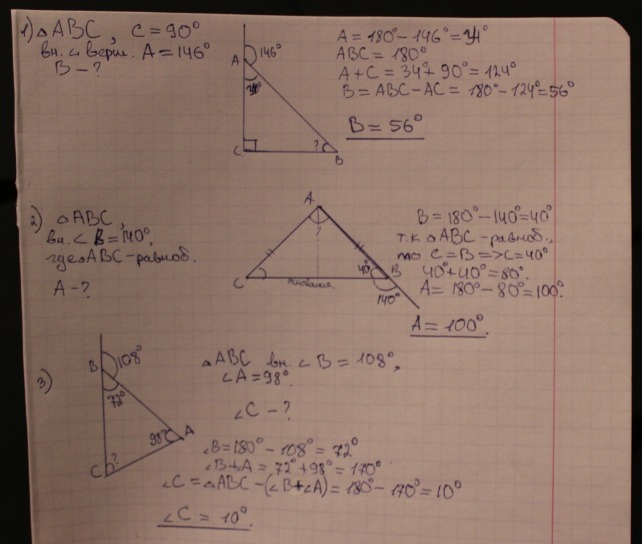 1) △ABC, C = 90°
вн. ∠ верш. A = 146°
B - ?
A
146°
34°
C
?
B
A = 180° - 146° = 34°
ABC = 180°
A + C = 34° + 90° = 124°
B = ABC - AC = 180° - 124° = 56°
B = 56°
2) △ABC,
вн. ∠ B = 140°,
где △ABC - равноб.
A - ?
A
?
C
40°
B
140°
B = 180° - 140° = 40°
т.к △ABC - равноб.,
то C = B => C = 40°
40° + 40° = 80°.
A = 180° - 80° = 100°.
A = 100°.
3)
B
108°
72°
98°
A
C
?
△ABC вн. ∠ B = 108°,
∠A = 98°.
∠C - ?
∠B = 180° - 108° = 72°
∠B + A = 72° + 98° = 170°
∠C = △ABC - (∠B + ∠A) = 180° - 170° = 10°
∠C = 10°.